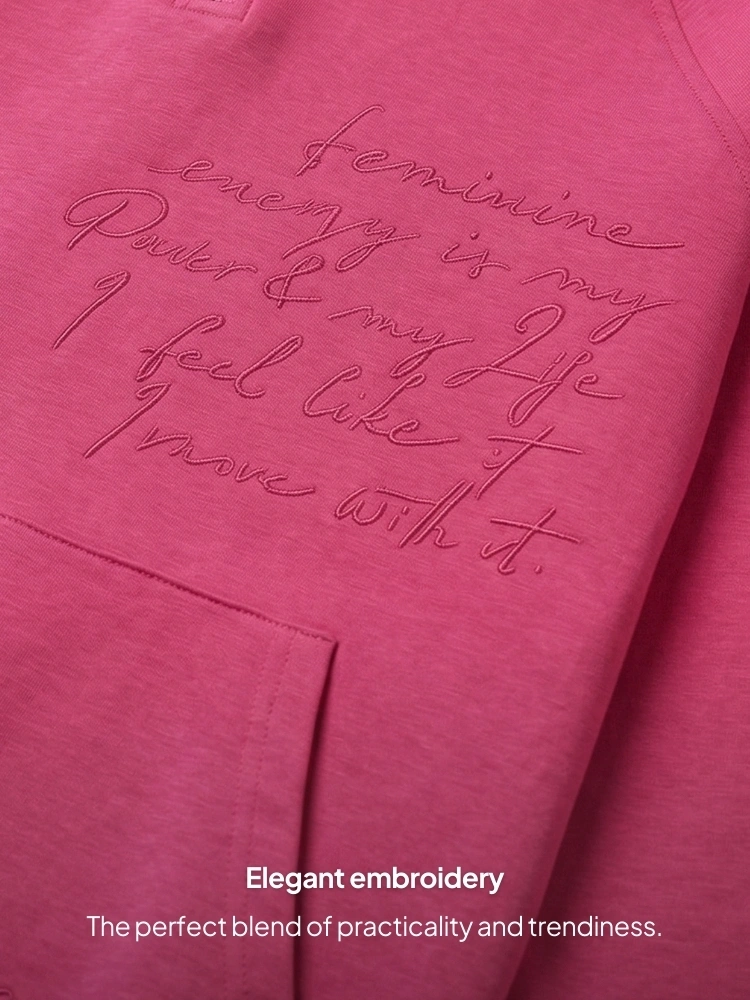 feminine
energy is my
Power & my Life
I feel like it
I move with it.
Elegant embroidery
The perfect blend of practicality and trendiness.